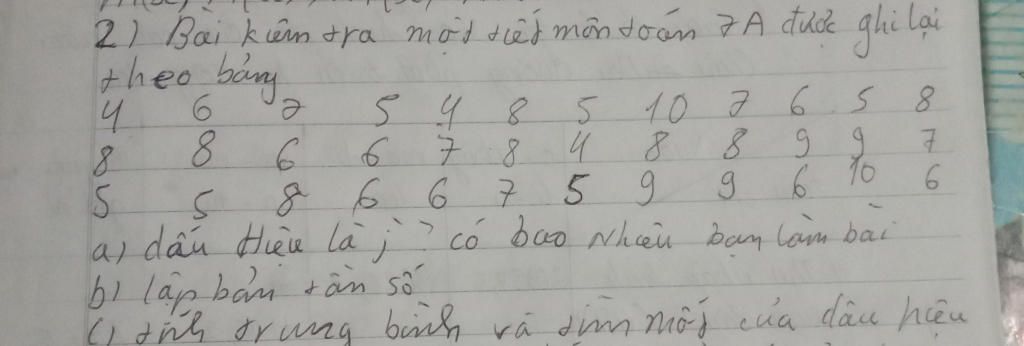 2) Bài kiểm tra một tiết môn toán 7A được ghi lại
theo bảng
4 6 7 5 4 8 5 10 7 6 5 8
8 8 6 6 7 8 4 8 8 9 9 7
5 5 8 6 6 7 5 9 9 6 10 6
a) dấu Hiệu là j? có bao Nhiêu bạn làm bài
b) lập bản tần số
c) tính trung bình và tìm mốt của dấu hiệu